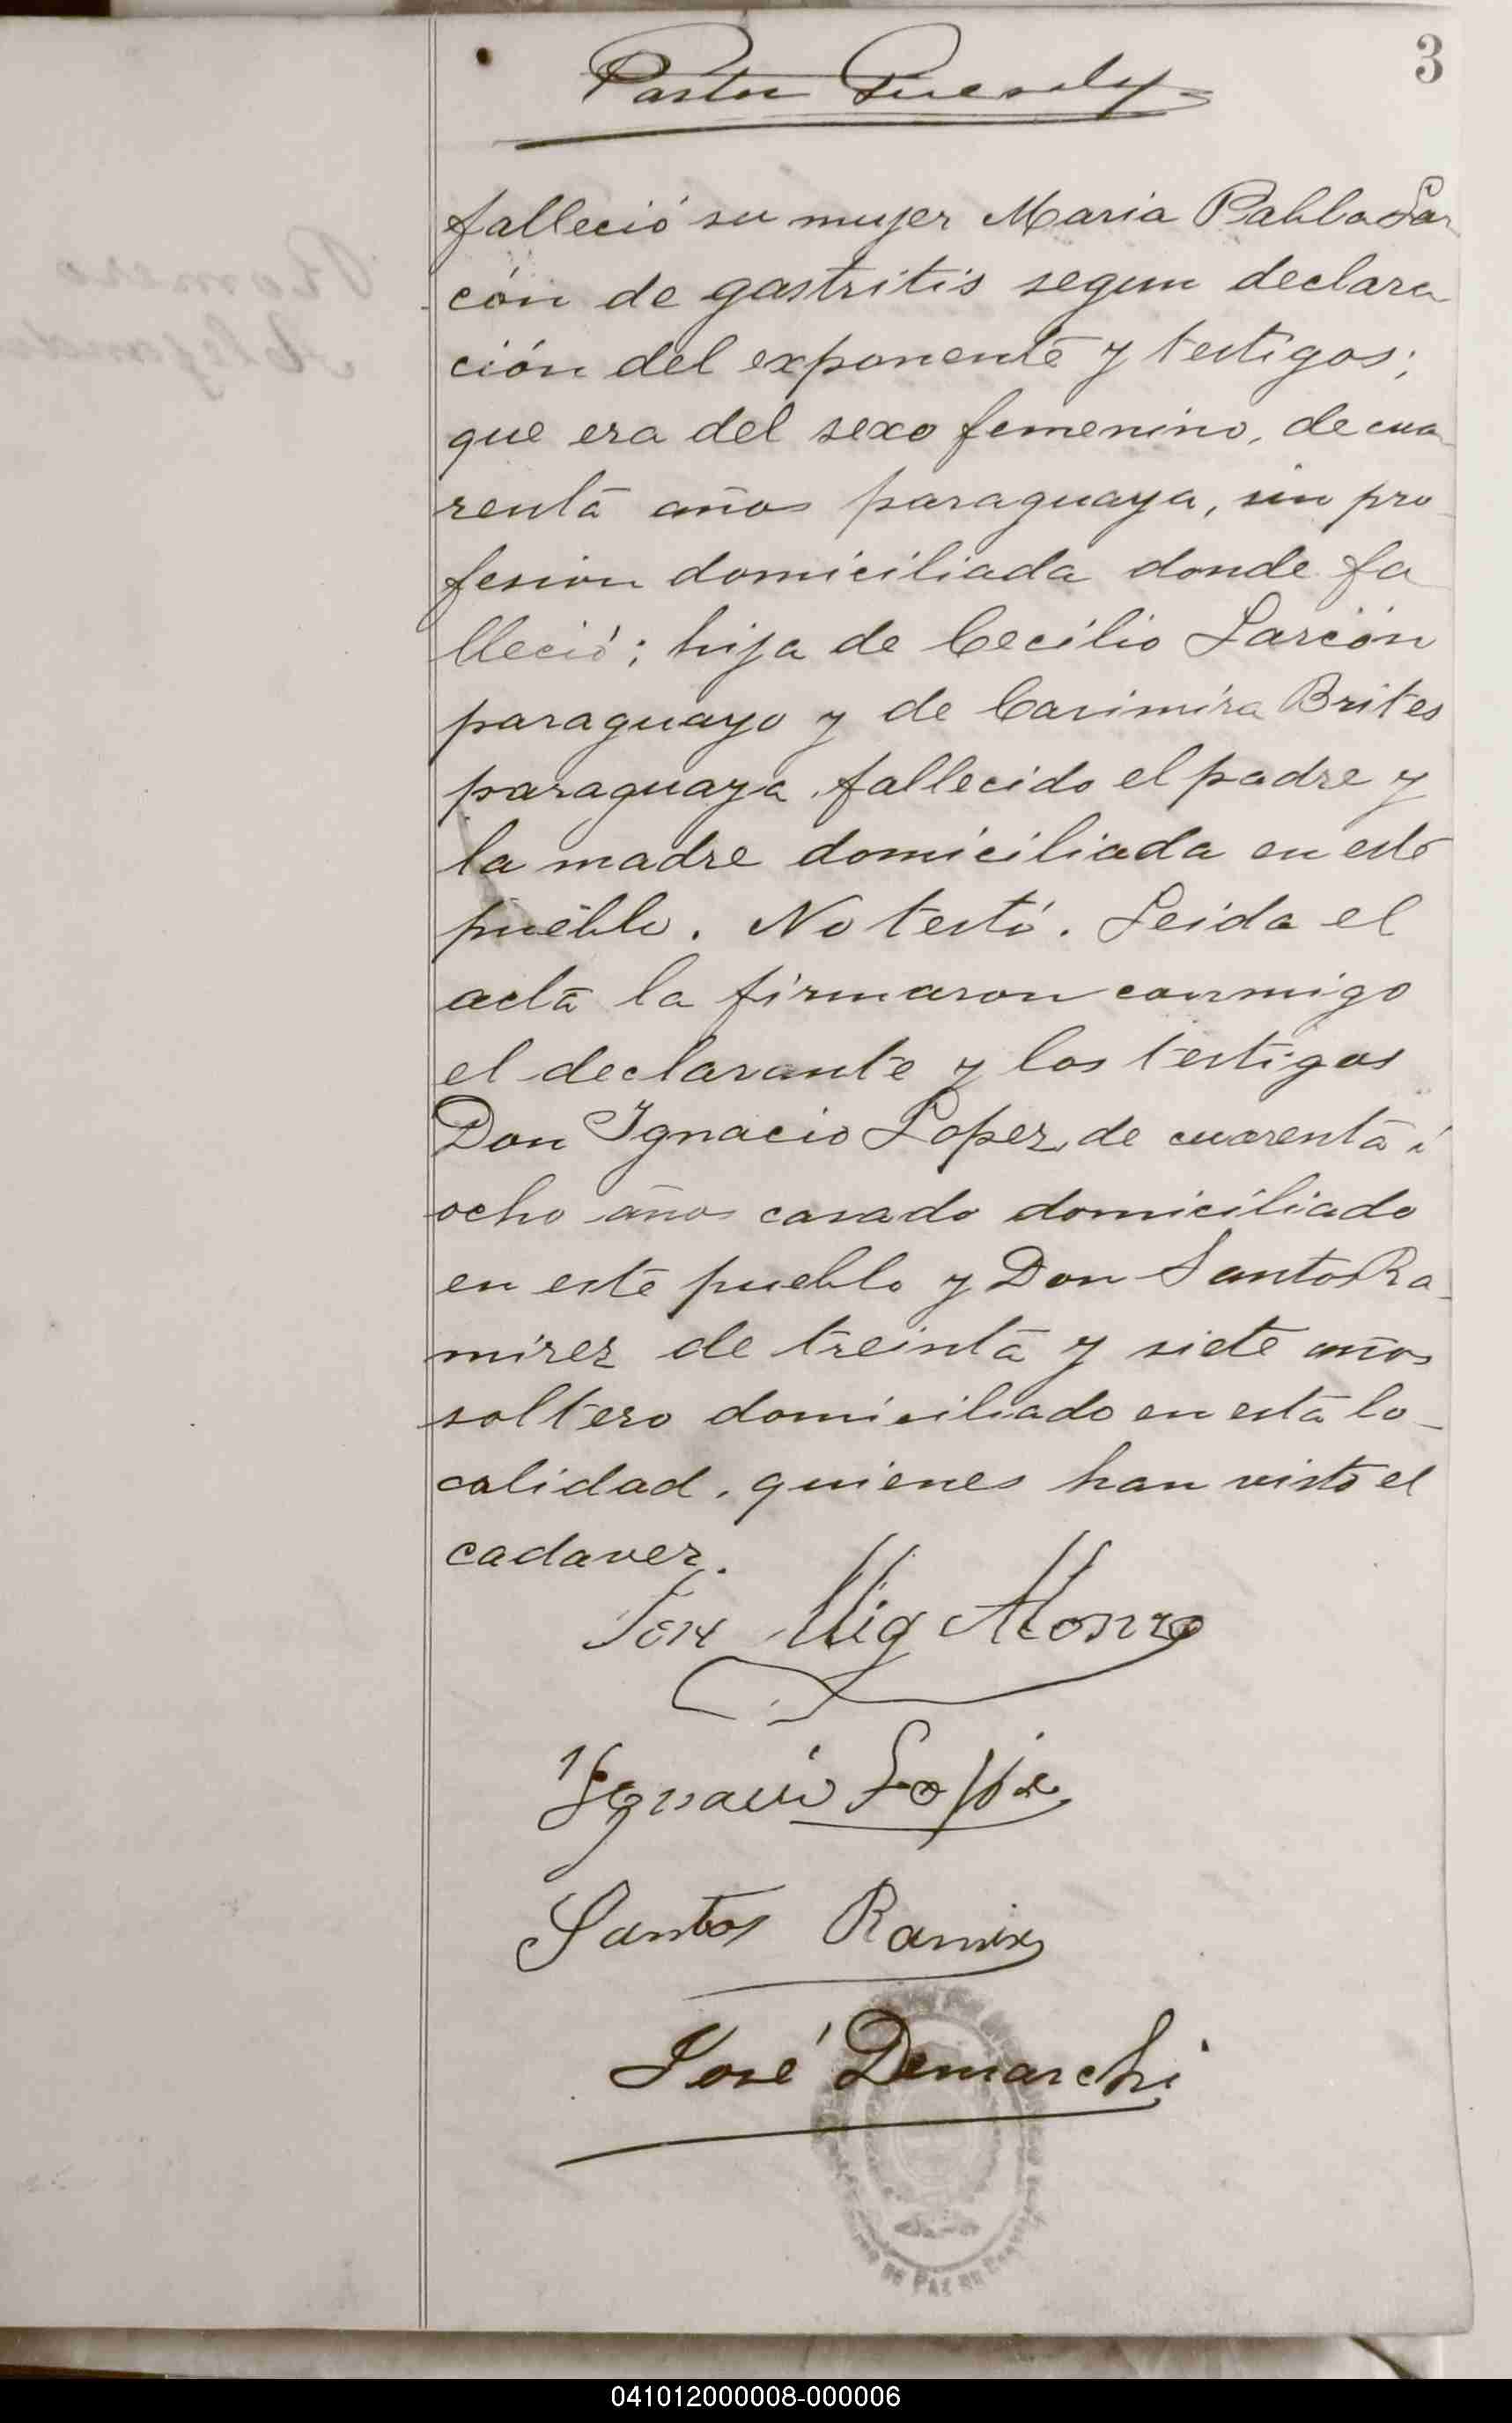 3
Pastor
falleció su mujer Maria Pabla Lar
cón de gastritis segun declara
ción del exponente y testigos;
que era del sexo femenino, de cua
renta años paraguaya, sin pro
fesion domiciliada donde fa
lleció; hija de Cecilio Larcón
paraguayo y de Casimira Brites
paraguaya, fallecido el padre y
la madre domiciliada en este
pueblo. No testó. Leida el
acta la firmaron conmigo
el declarante y los testigos
Don Ignacio Lopez, de cuarenta i
ocho años casado domiciliado
en este pueblo y Don Santos Ra
mirez de treinta y siete años
soltero domiciliado en esta lo
calidad, quienes han visto el
cadaver.
Mig Alonzo
Ignacio Lopez
Santos Ramirez
José Demarchi
DE PAZ DE
041012000008-000006